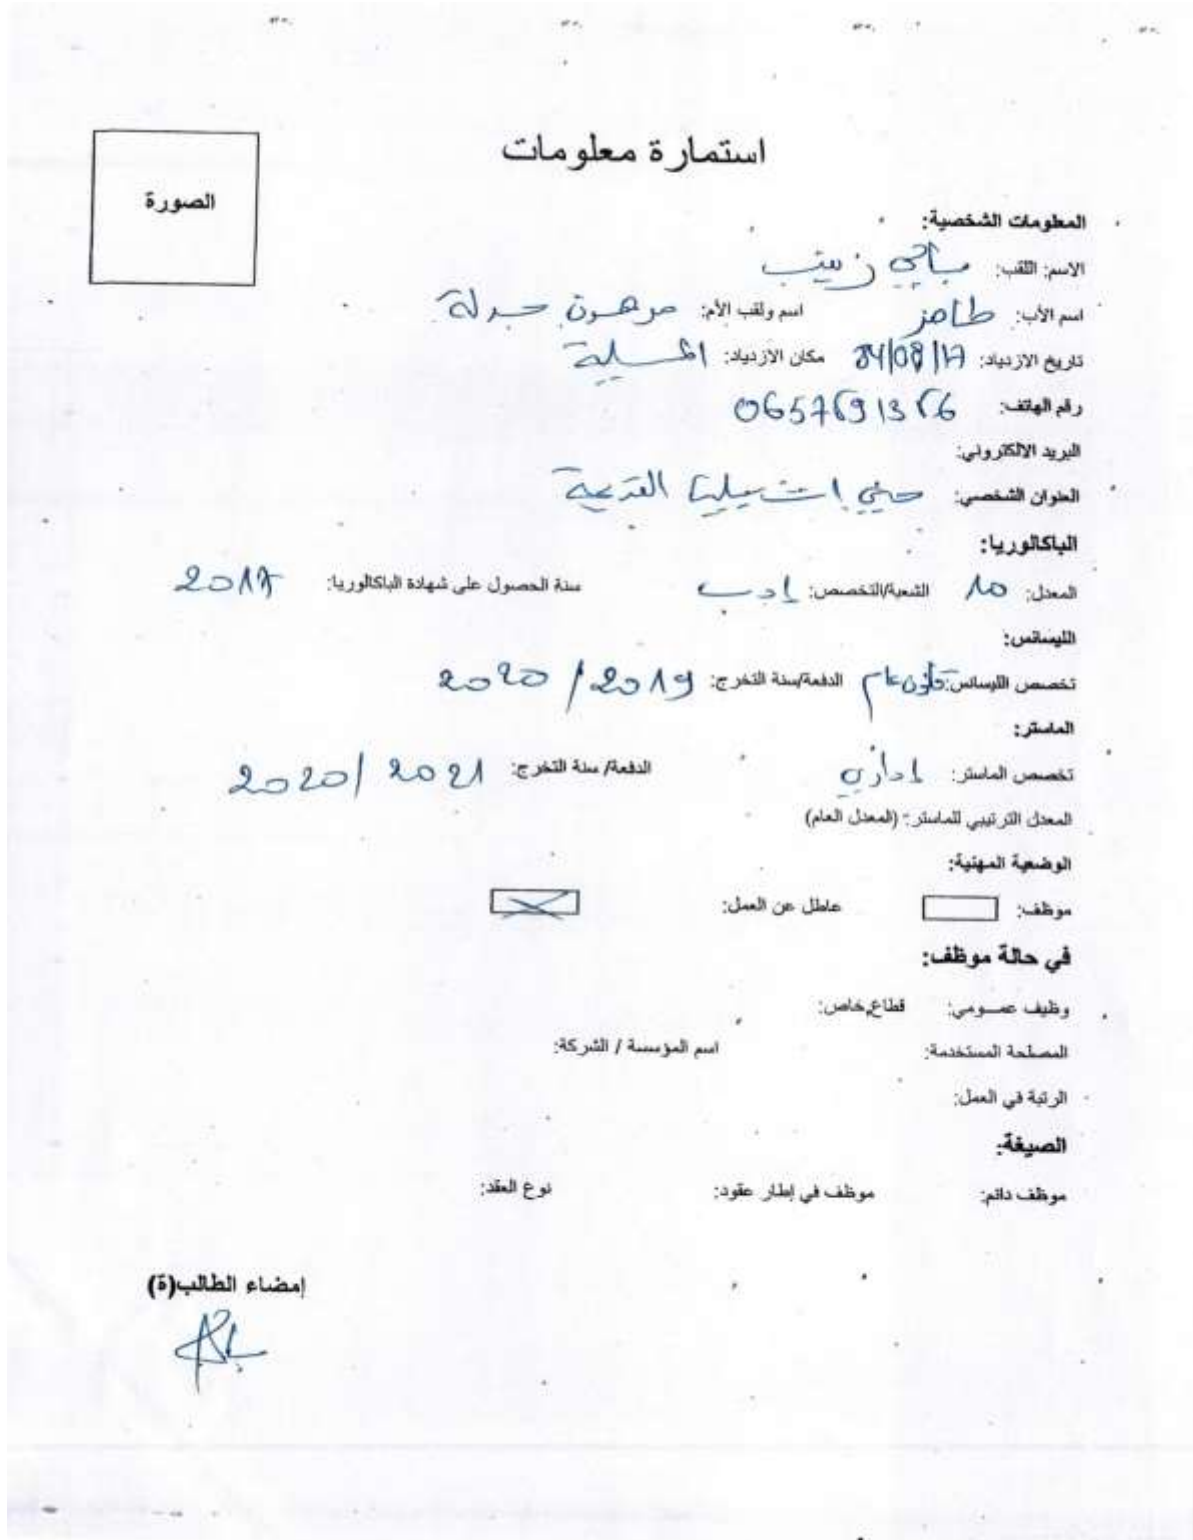 استمارة معلومات
الصورة
المعلومات الشخصية:
الاسم: اللقب: باجي زينب
اسم الأب: طاهر اسم ولقب الأم: مرهون
تاريخ الازدياد: مكان الازدياد: المسيلة
رقم الهاتف:
البريد الالكتروني:
العنوان الشخصي: حي اشبيليا القديمة
الباكالوريا:
المعدل: 10 الشعبة/التخصص: ادب سنة الحصول على شهادة الباكالوريا: 2017
الليسانس:
تخصص الليسانس: قانون عام الدفعة/سنة التخرج: 2019/2020
الماستر:
تخصص الماستر: إداري الدفعة/ سنة التخرج: 2020/2021
المعدل الترتيبي للماستر: (المعدل العام)
الوضعية المهنية:
موظف: عاطل عن العمل:
في حالة موظف:
وظيف عمـــومي: قطاع خاص:
المصلحة المستخدمة: اسم المؤسسة / الشركة:
الرتبة في العمل:
الصيغة:
موظف دائم: موظف في إطار عقود: نوع العقد:
إمضاء الطالب(ة)